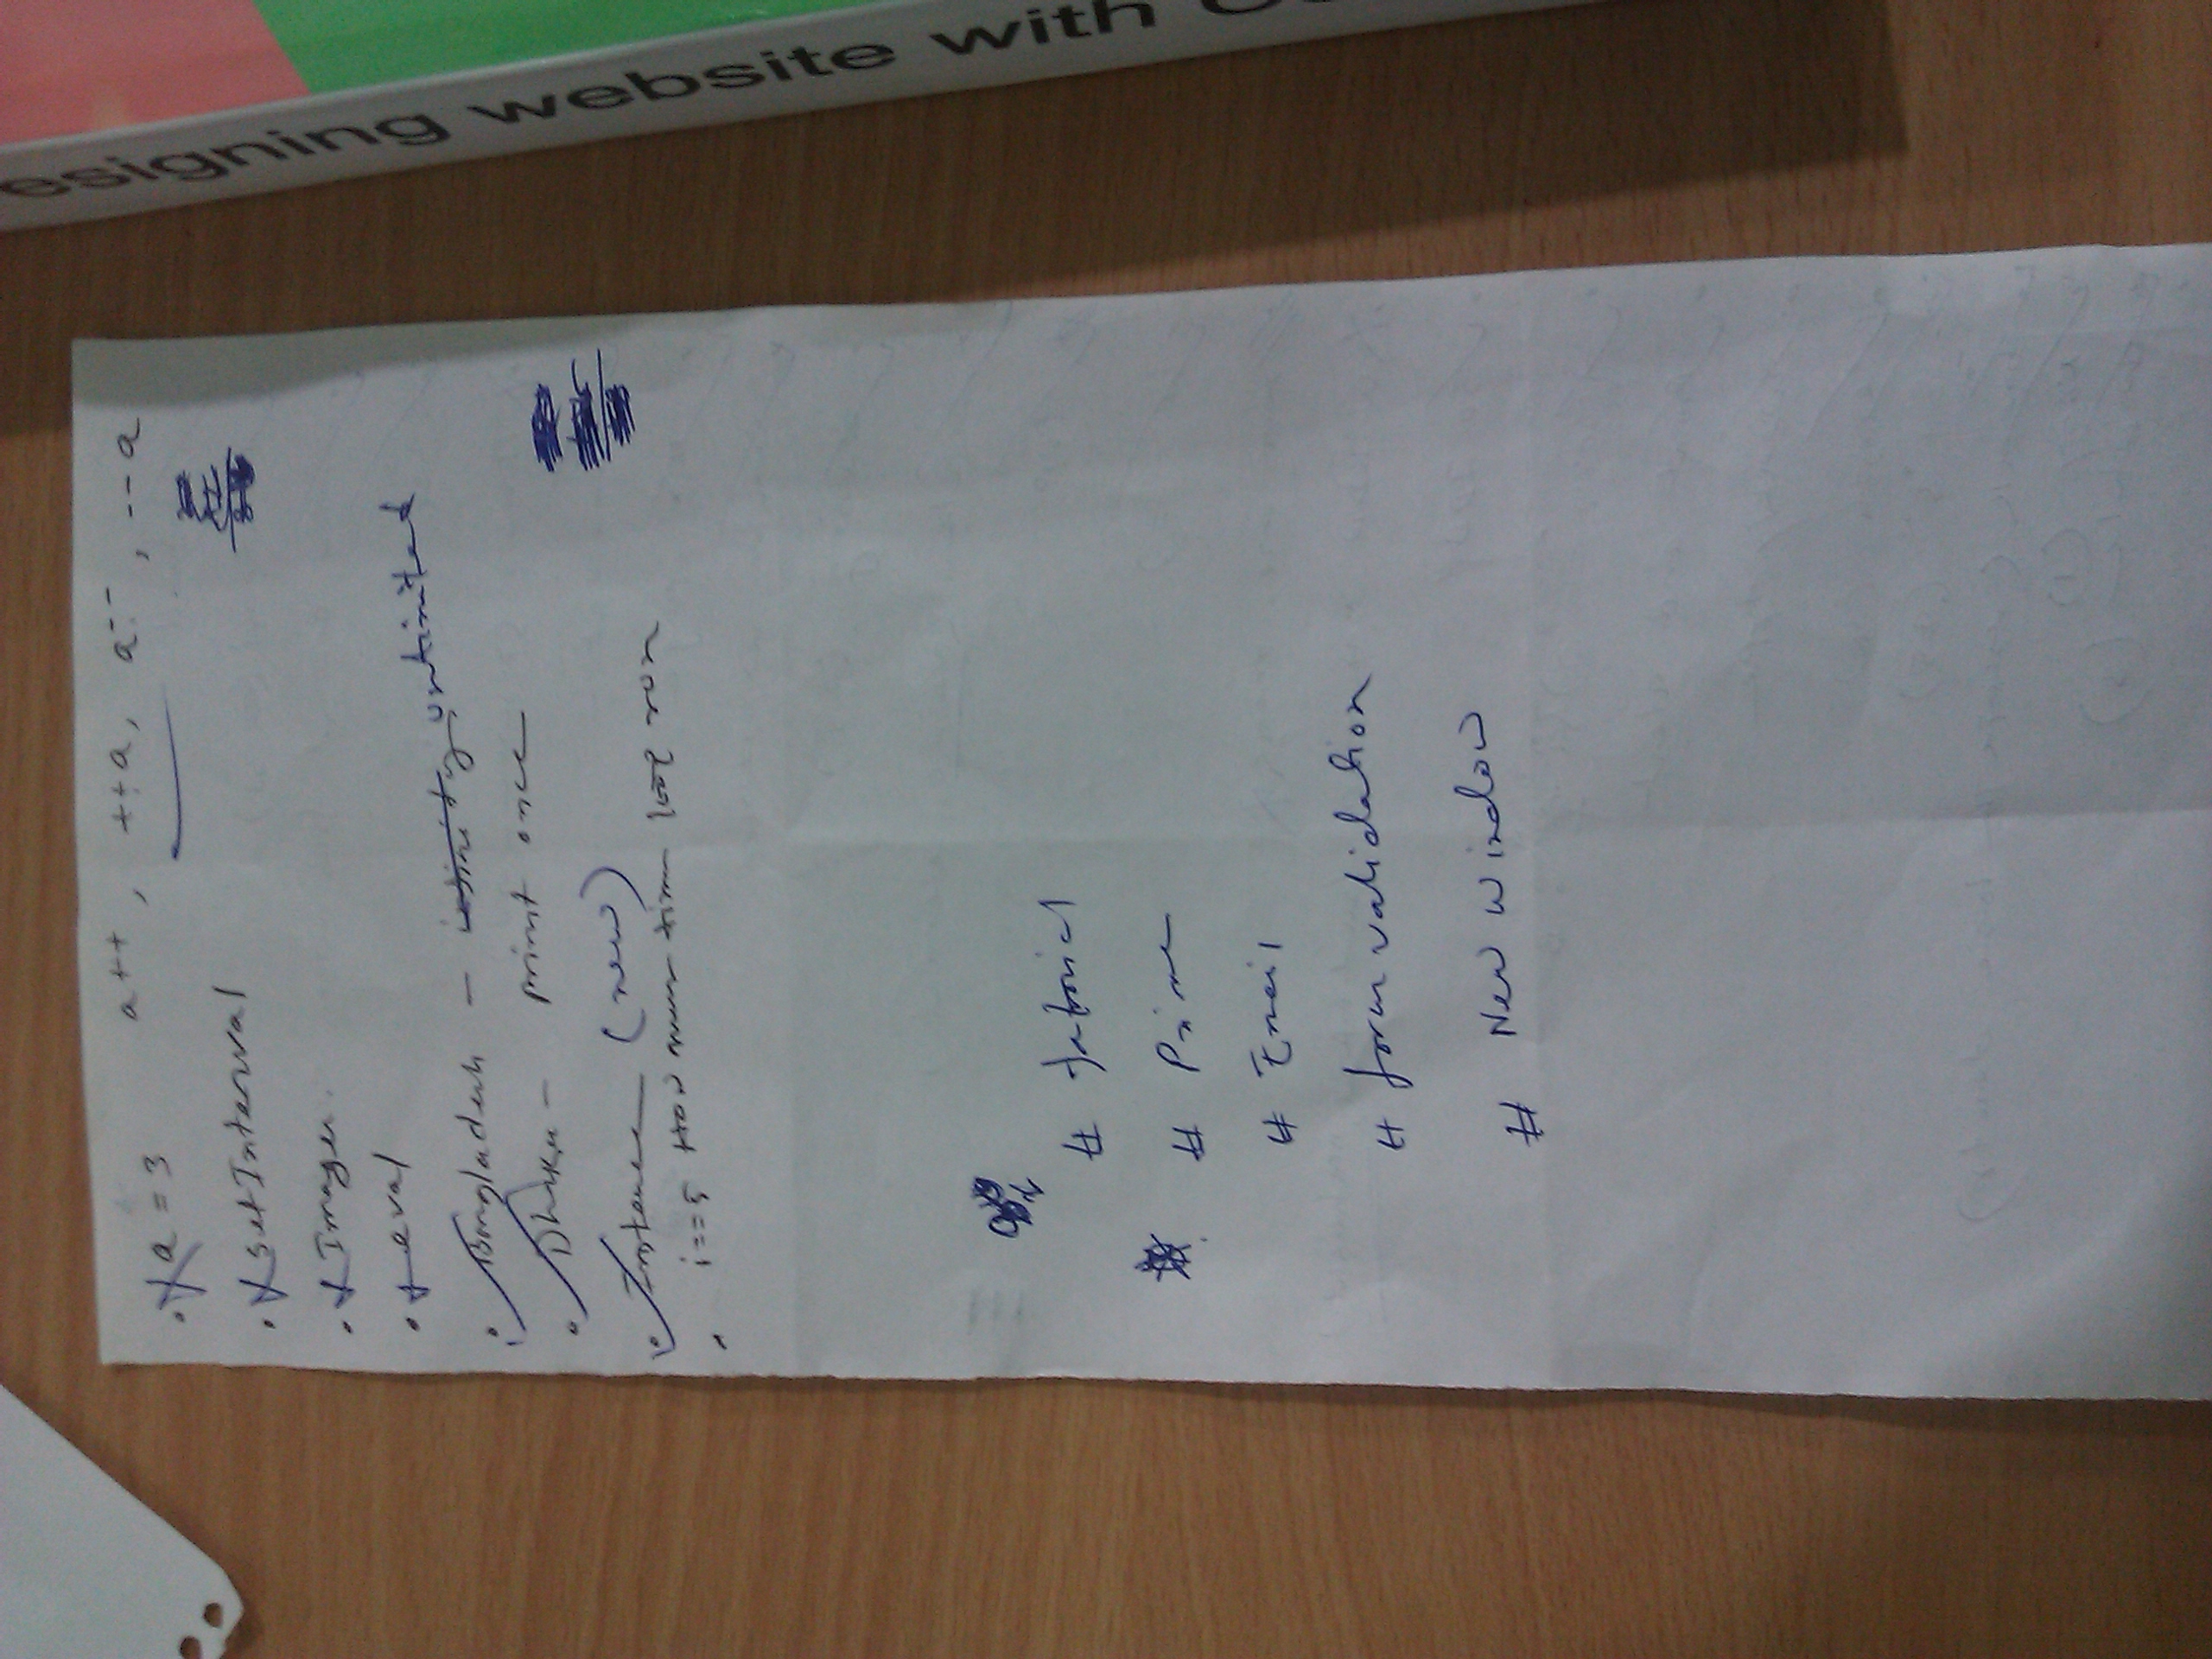 esigning website with
a = 3 a++ , ++a, a-- , --a
setInterval
Images
eval
Bangladesh - infinity untimited
Dhaka - print once
Instance (new)
i==5 How many time loop run
# fatorial
# Prime
# Email
# form validation
# New window